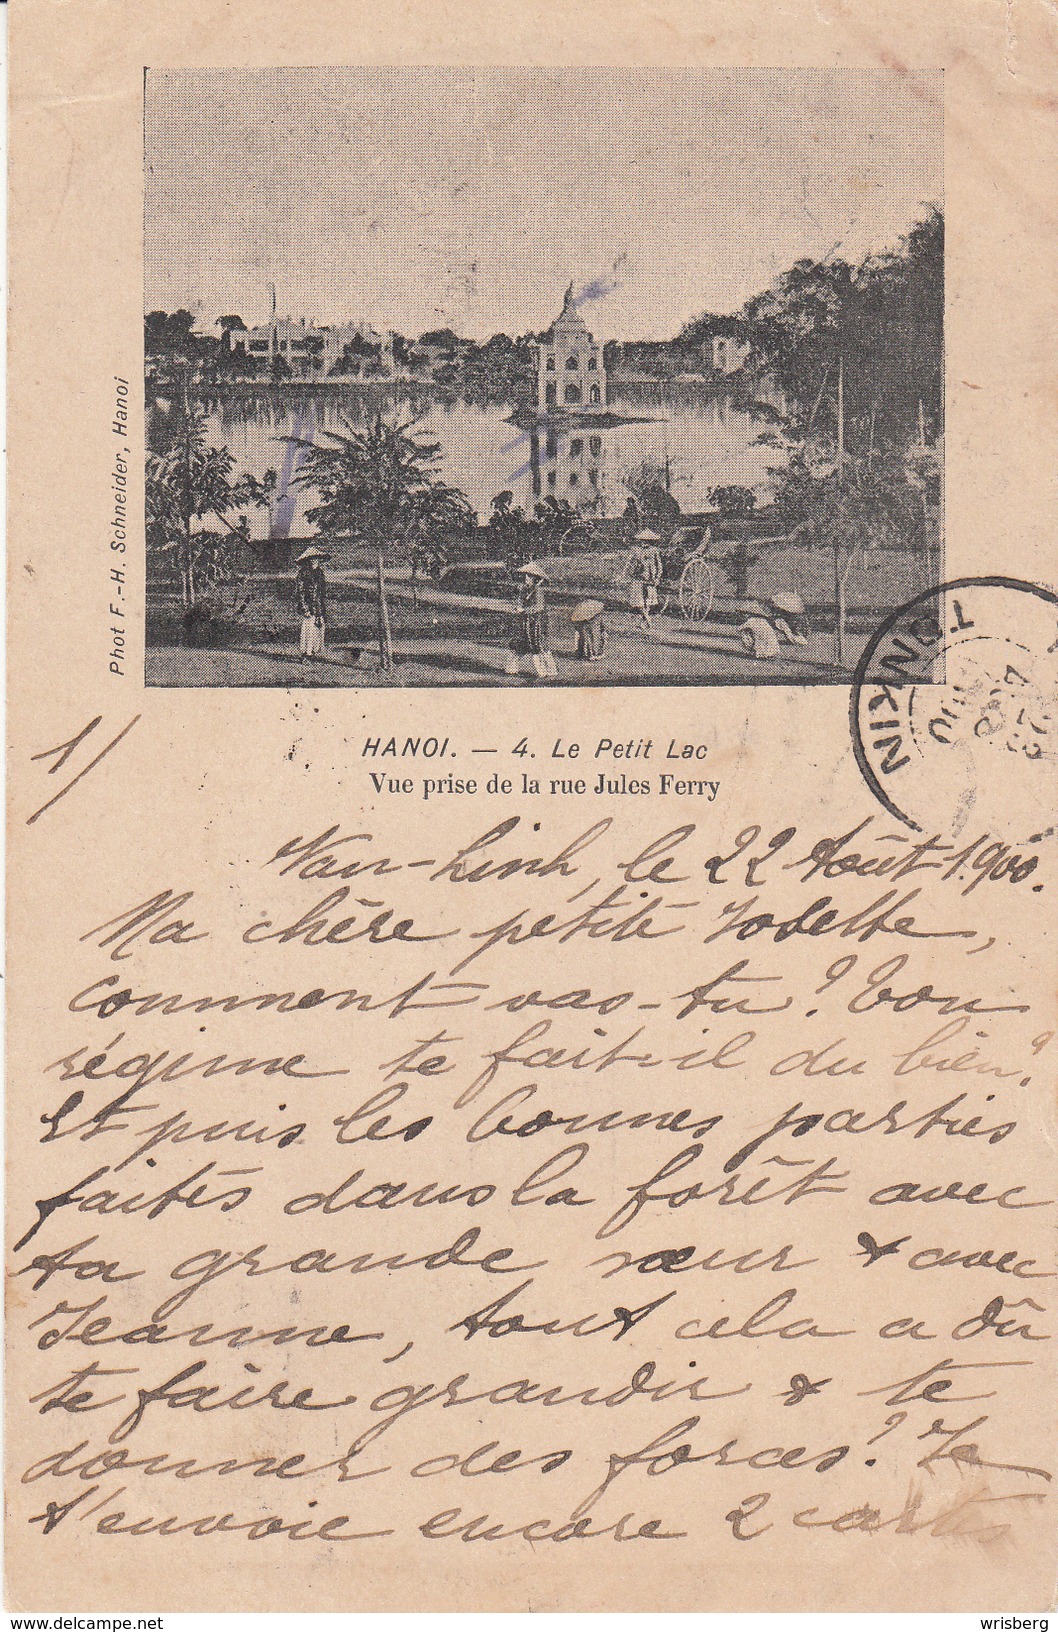 Phot F.-H. Schneider, Hanoi
TONKIN
HANOI. — 4. Le Petit Lac
Vue prise de la rue Jules Ferry
1/
Van-Linh, le 22 Août 1.900.
Ma chère petite Yvette,
comment vas-tu? Ton
régime te fait-il du bien?
Et puis les bonnes parties
faites dans la forêt avec
ta grande sœur & avec
Jeanne, tout cela a dû
te faire grandir & te
donner des forces? Je
t'envoie encore 2 cartes
delcampe.net
wrisberg